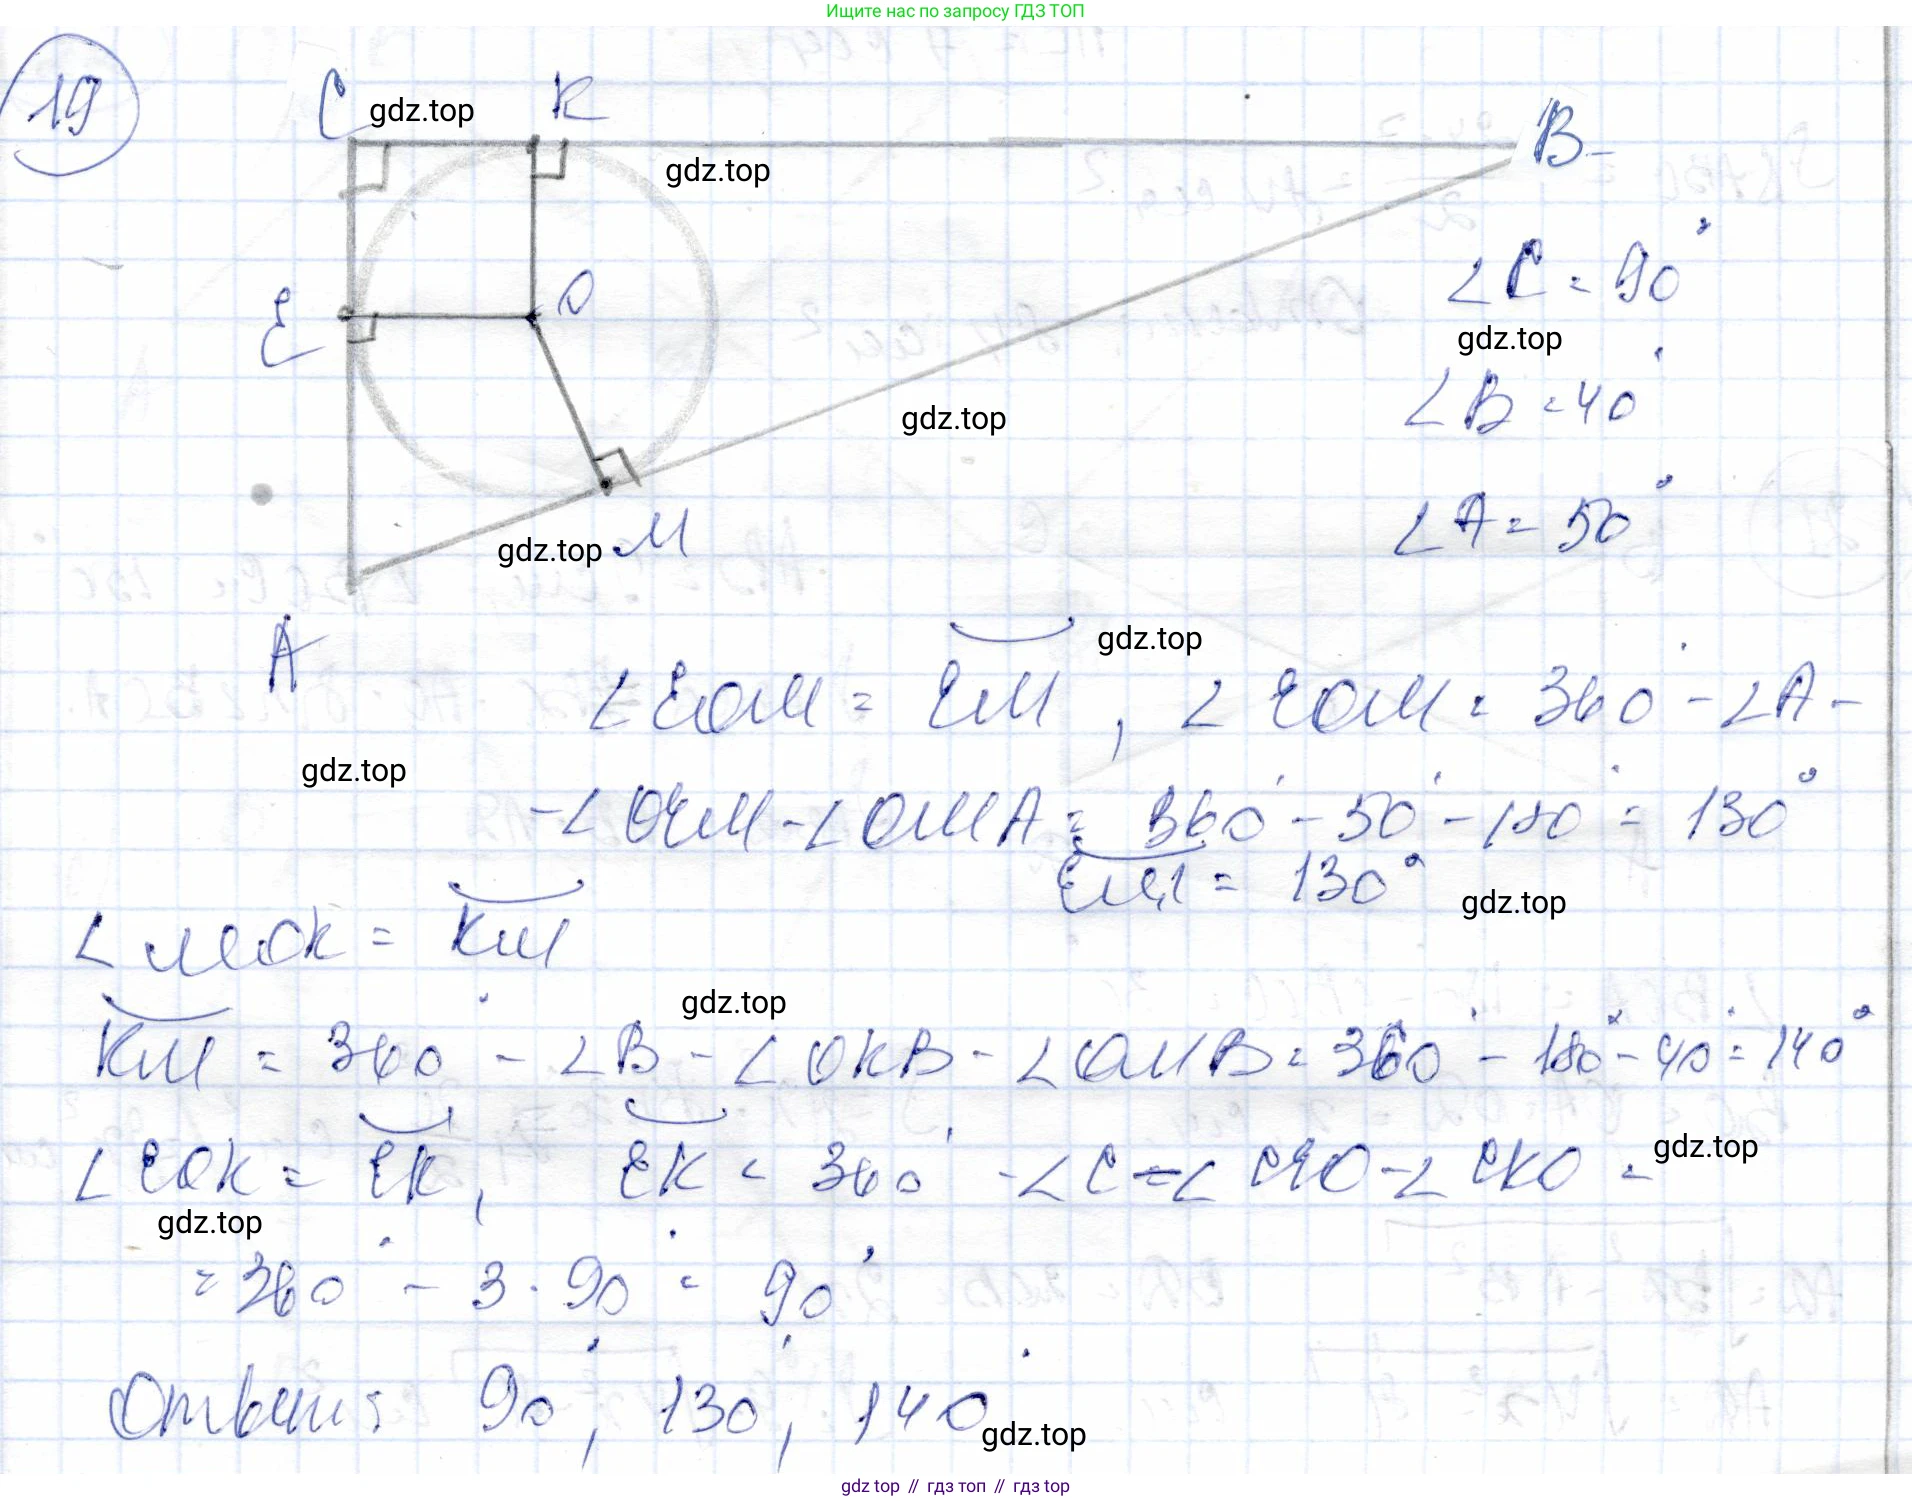 Ищите нас по запросу ГДЗ ТОП
19
C gdz.top K
gdz.top
B
E O
∠C = 90°
gdz.top
gdz.top
∠B = 40°
∠A = 50°
gdz.top M
A
gdz.top
∠EOM = EM, ∠EOM = 360° - ∠A -
gdz.top
- ∠OEM - ∠OMA = 360° - 50° - 180° = 130°
EM = 130°
gdz.top
∠MOK = KM
gdz.top
KM = 360° - ∠B - ∠OKB - ∠OMB = 360° - 180° - 40° = 140°
∠EOK = EK, EK = 360° - ∠C - ∠CEO - ∠CKO =
gdz.top
gdz.top
= 360° - 3 · 90° = 90°
Ответ: 90°, 130°, 140°
gdz.top
gdz top // гдз топ // gdz top